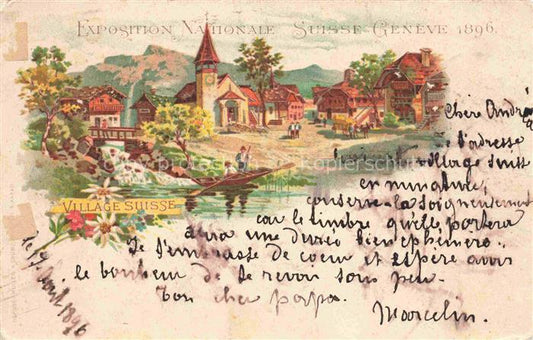 EXPOSITION NATIONALE SUISSE GENÈVE 1896.
VILLAGE SUISSE
Chère André
l'adresse
village suisse
en miniature,
conserve-la soigneusement
car le timbre qu'elle portera
aura une durée bien éphémère.
Je t'embrasse de coeur et espère avoir
le bonheur de te revoir sous peu.
Ton cher papa.
Marcelin.
le 19 août 1896